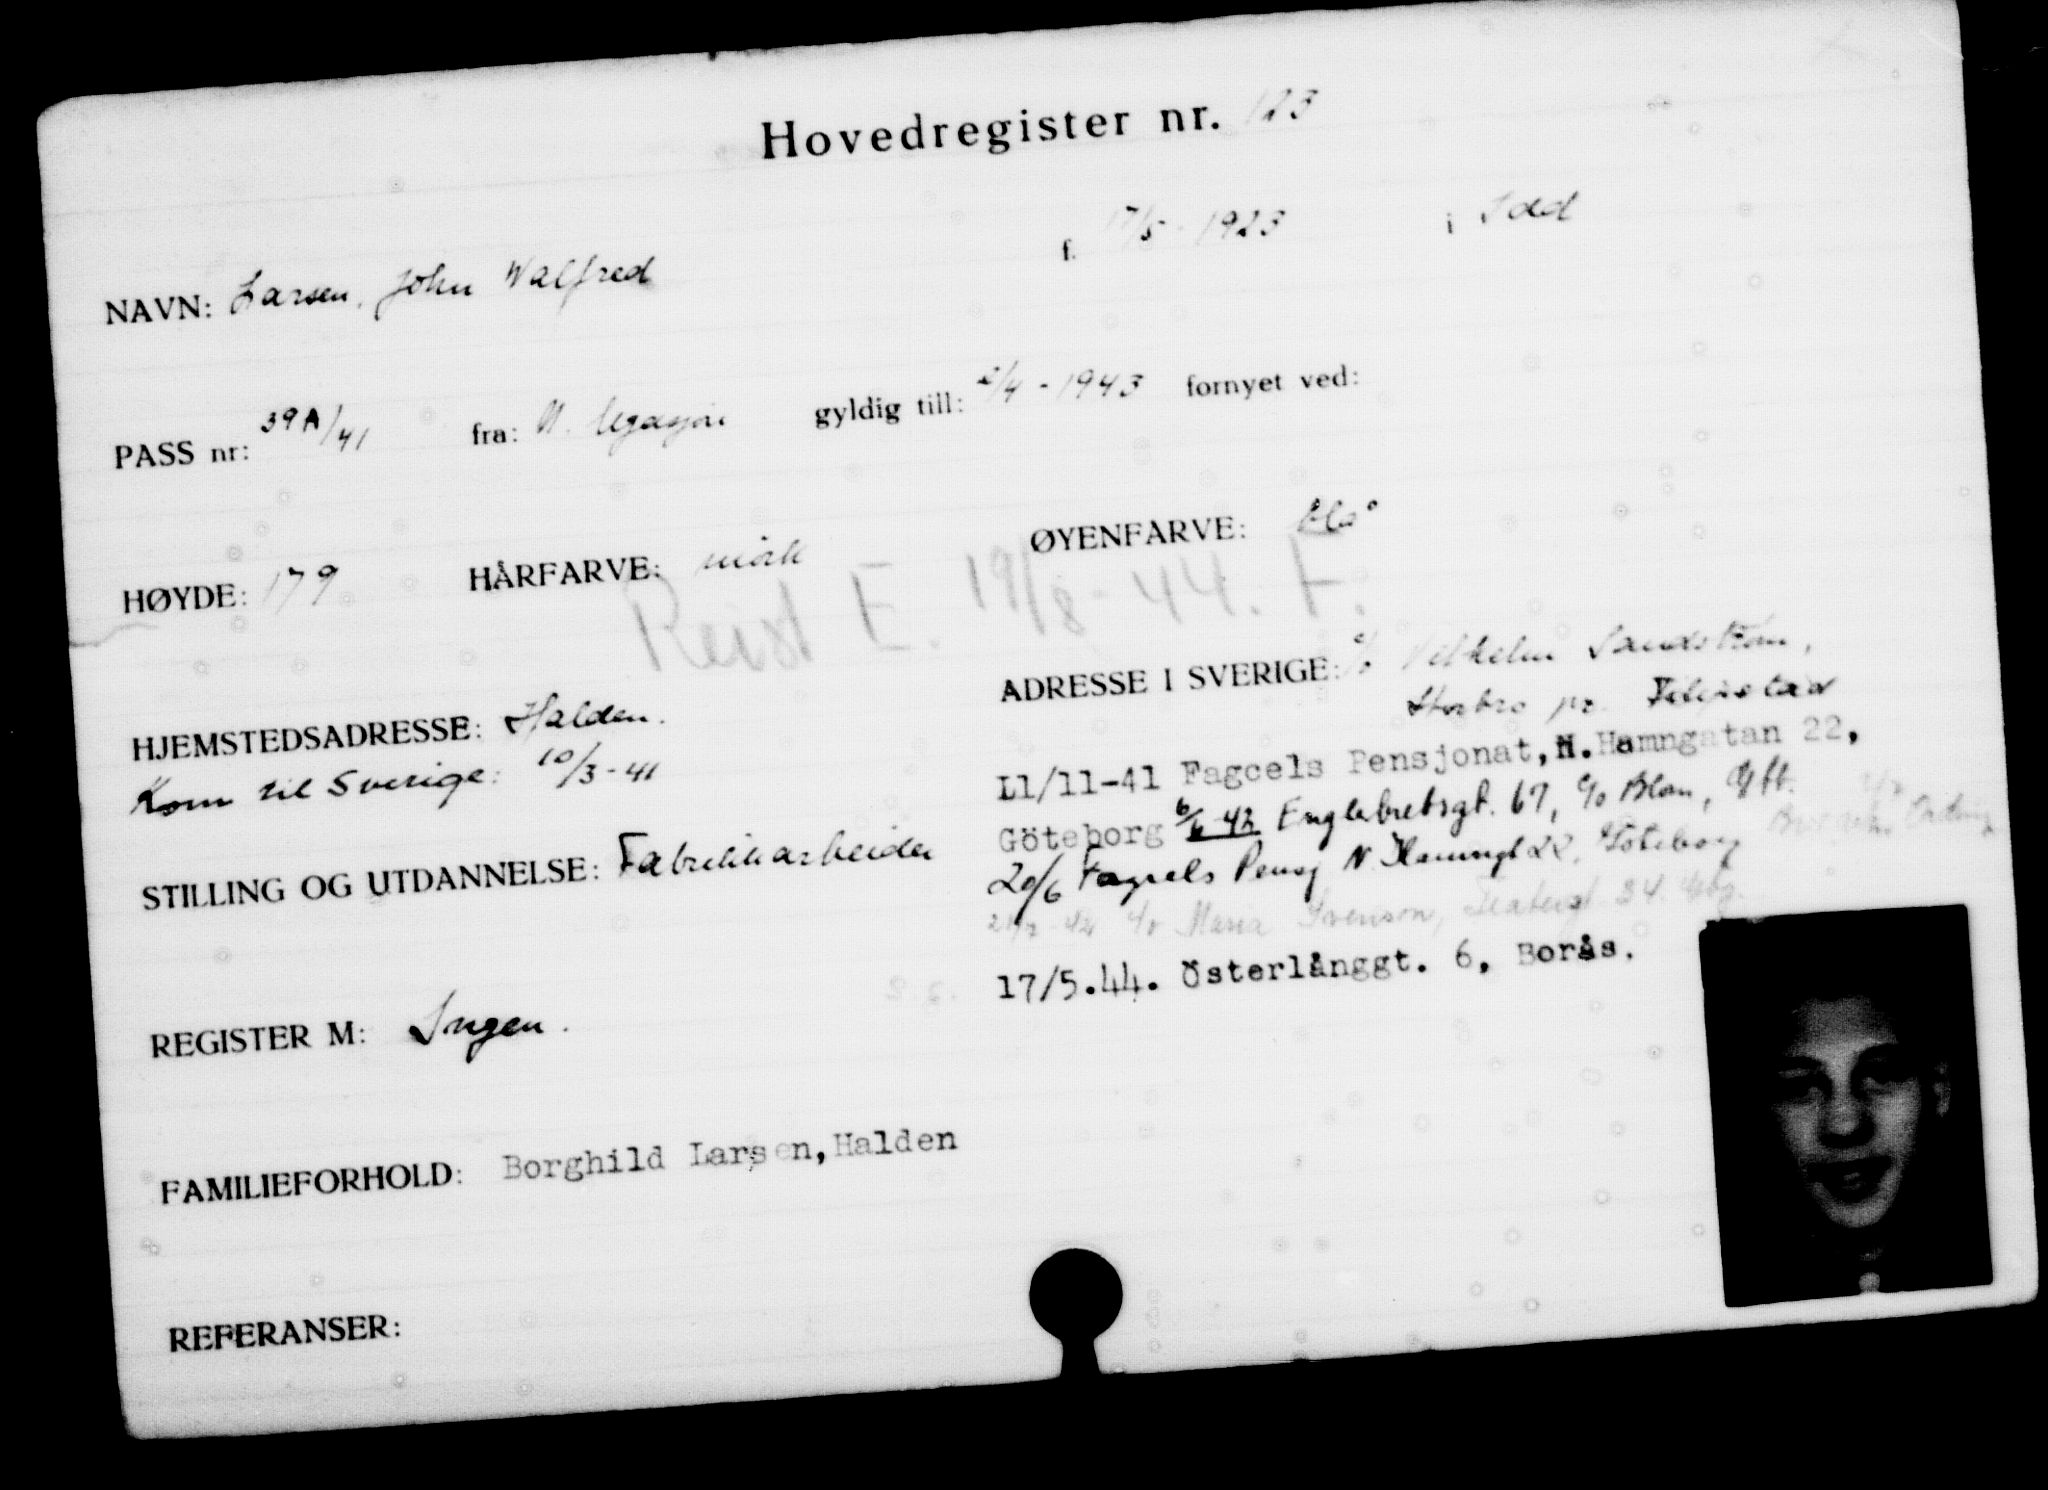 Hovedregister nr. 123
NAVN: Larsen, John Walfred f. 17/5-1923 i Idd
PASS nr: 39A/41 fra: N. legasjon gyldig till: 2/4-1943 fornyet ved:
HØYDE: 179 HÅRFARVE: mörk ØYENFARVE: blå
Reist E. 19/8-44. F.
HJEMSTEDSADRESSE: Halden.
Kom til Sverige: 10/3-41
ADRESSE I SVERIGE: c/o Vilhelm Sandström,
Storbro pr. Filipstad
L1/11-41 Fagcels Pensjonat, N. Hamngatan 22,
Göteborg 42 Englebretsgt. 67, c/o Blom, Gbt.
20/6 Fagcels Pensj N. Hamngt 22, Göteborg
42 c/o Maria Svenson, 34. Gbg.
17/5.44. Österlånggt. 6, Borås.
STILLING OG UTDANNELSE: Fabrikkarbeider
REGISTER M: Ingen.
FAMILIEFORHOLD: Borghild Larsen, Halden
REFERANSER: